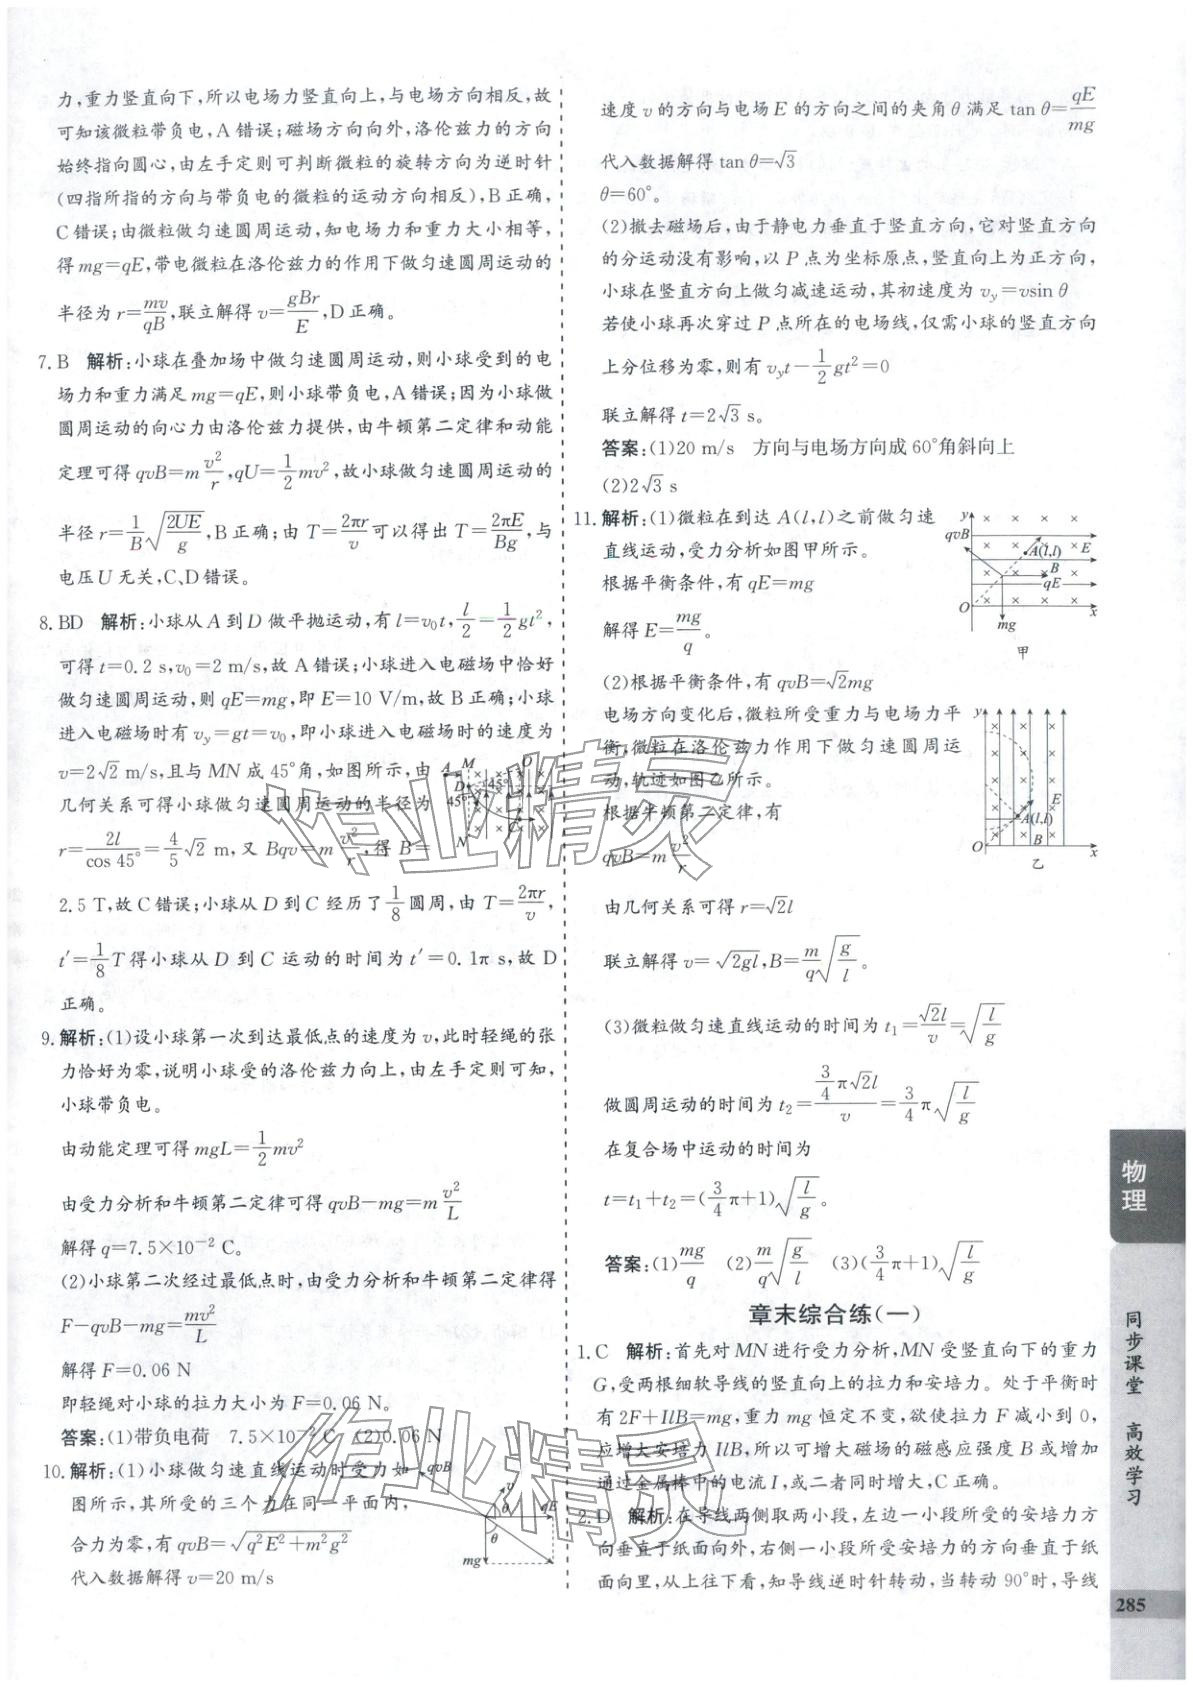 力,重力竖直向下,所以电场力竖直向上,与电场方向相反,故
可知该微粒带负电,A错误;磁场方向向外,洛伦兹力的方向
始终指向圆心,由左手定则可判断微粒的旋转方向为逆时针
(四指所指的方向与带负电的微粒的运动方向相反),B正确,
C错误;由微粒做匀速圆周运动,知电场力和重力大小相等,
得mg=qE,带电微粒在洛伦兹力的作用下做匀速圆周运动的
半径为r=mv/qB,联立解得v=gBr/E,D正确。
7.B 解析:小球在叠加场中做匀速圆周运动,则小球受到的电
场力和重力满足mg=qE,则小球带负电,A错误;因为小球做
圆周运动的向心力由洛伦兹力提供,由牛顿第二定律和动能
定理可得qvB=m v²/r,qU=1/2 mv²,故小球做匀速圆周运动的
半径r=1/B √(2UE/g),B正确;由T=2πr/v可以得出T=2πE/Bg,与
电压U无关,C、D错误。
8.BD 解析:小球从A到D做平抛运动,有l=v₀t,l/2=1/2 gt²,
可得t=0.2 s,v₀=2 m/s,故A错误;小球进入电磁场中恰好
做匀速圆周运动,则qE=mg,即E=10 V/m,故B正确;小球
进入电磁场时有v_y=gt=v₀,即小球进入电磁场时的速度为
v=2√2 m/s,且与MN成45°角,如图所示,由
几何关系可得小球做匀速圆周运动的半径为
r=2l/cos 45°=4/5 √2 m,又Bqv=m v²/r,得B=
2.5 T,故C错误;小球从D到C经历了1/8圆周,由T=2πr/v,
t′=1/8 T得小球从D到C运动的时间为t′=0.1π s,故D
正确。
A M O
D 45°
45°
C
N
9.解析:(1)设小球第一次到达最低点的速度为v,此时轻绳的张
力恰好为零,说明小球受的洛伦兹力向上,由左手定则可知,
小球带负电。
由动能定理可得mgL=1/2 mv²
由受力分析和牛顿第二定律可得qvB−mg=m v²/L
解得q=7.5×10⁻² C。
(2)小球第二次经过最低点时,由受力分析和牛顿第二定律得
F−qvB−mg=mv²/L
解得F=0.06 N
即轻绳对小球的拉力大小为F=0.06 N。
答案:(1)带负电荷 7.5×10⁻² C (2)0.06 N
10.解析:(1)小球做匀速直线运动时受力如
图所示,其所受的三个力在同一平面内,
合力为零,有qvB=√(q²E²+m²g²)
代入数据解得v=20 m/s
qvB v
θ qE
θ
mg
速度v的方向与电场E的方向之间的夹角θ满足tan θ=qE/mg
代入数据解得tan θ=√3
θ=60°。
(2)撤去磁场后,由于静电力垂直于竖直方向,它对竖直方向
的分运动没有影响,以P点为坐标原点,竖直向上为正方向,
小球在竖直方向上做匀减速运动,其初速度为v_y=vsin θ
若使小球再次穿过P点所在的电场线,仅需小球的竖直方向
上分位移为零,则有v_y t−1/2 gt²=0
联立解得t=2√3 s。
答案:(1)20 m/s 方向与电场方向成60°角斜向上
(2)2√3 s
11.解析:(1)微粒在到达A(l,l)之前做匀速
直线运动,受力分析如图甲所示。
根据平衡条件,有qE=mg
解得E=mg/q。
y
qvB
A(l,l) E
B
qE
O x
mg
甲
(2)根据平衡条件,有qvB=√2mg
电场方向变化后,微粒所受重力与电场力平
衡,微粒在洛伦兹力作用下做匀速圆周运
动,轨迹如图乙所示。
根据牛顿第二定律,有
qvB=m v²/r
y
E
A(l,l)
B
O x
乙
由几何关系可得r=√2l
联立解得v=√(2gl),B=m/q √(g/l)。
(3)微粒做匀速直线运动的时间为t₁=√2l/v=√(l/g)
做圆周运动的时间为t₂=(3/4 π√2l)/v=3/4 π√(l/g)
在复合场中运动的时间为
t=t₁+t₂=(3/4 π+1)√(l/g)。
答案:(1)mg/q (2)m/q √(g/l) (3)(3/4 π+1)√(l/g)
章末综合练(一)
1.C 解析:首先对MN进行受力分析,MN受竖直向下的重力
G,受两根细软导线的竖直向上的拉力和安培力。处于平衡时
有2F+IlB=mg,重力mg恒定不变,欲使拉力F减小到0,
应增大安培力IlB,所以可增大磁场的磁感应强度B或增加
通过金属棒中的电流I,或二者同时增大,C正确。
2.D 解析:在导线两侧取两小段,左边一小段所受的安培力方
向垂直于纸面向外,右侧一小段所受安培力的方向垂直于纸
面向里,从上往下看,知导线逆时针转动,当转动90°时,导线
物理
同步课堂 高效学习
285
作业精灵
作业精灵